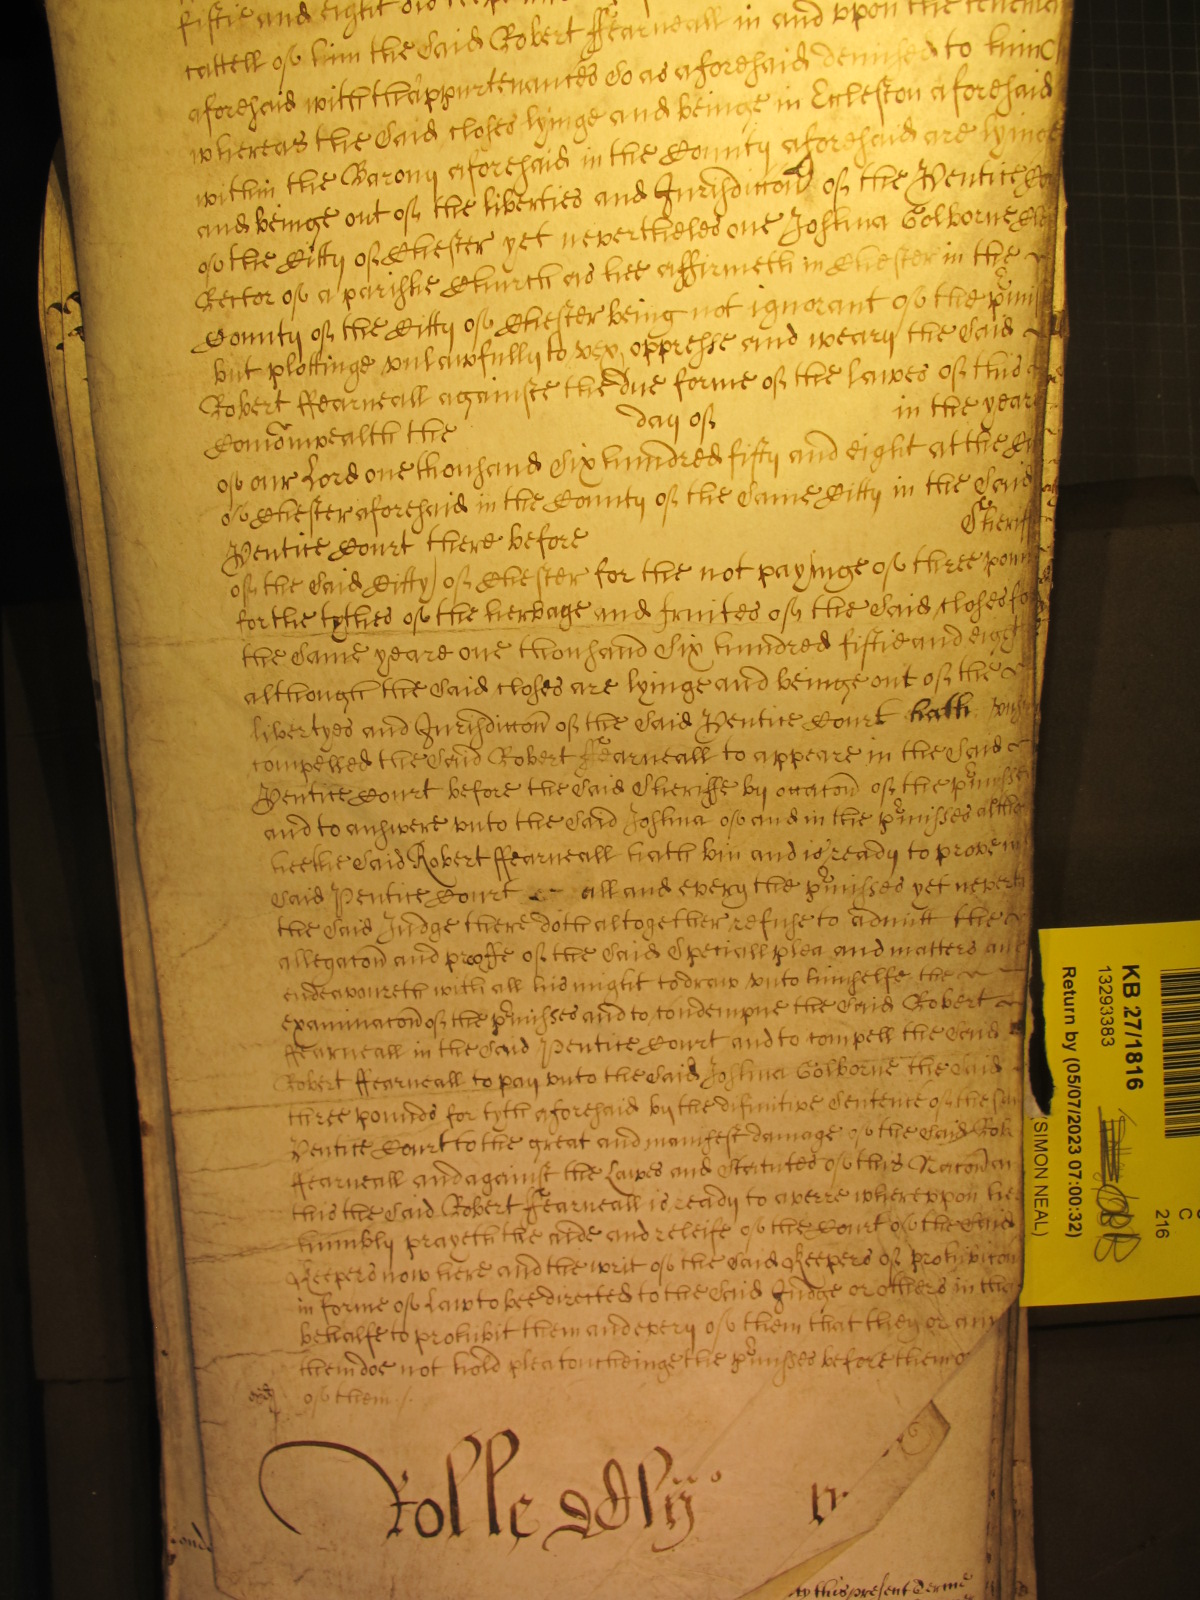 fiftie and eight did
cattell of him the said Robert ffearneall in and vpon the
aforesaid with thappurtenances so as aforesaid demised to him
whereas the said closes lyinge and beinge in Eccleston aforesaid
within the Barony aforesaid in the County aforesaid are lyinge
and beinge out of the liberties and Jurisdiccon of the Pentice
of the Citty of Chester yet neverthelesse one Joshua Golborne
Rector of a parishe Church as hee affirmeth in Chester in the
County of the Citty of Chester being not ignorant of the
but plottinge vnlawfully to vex, oppresse and weary the said
Robert ffearneall againste the due forme of the lawes of this
Comonwealth the day of in the year
of our Lord one thousand six hundred fifty and eight at the
of Chester aforesaid in the County of the same Citty in the said
Pentice Court there before Sheriff
of the said Citty of Chester for the not payinge of three
for the tythes of the herbage and fruites of the said closes
the same yeare one thousand six hundred fiftie and eight
although the said closes are lyinge and beinge out of the
libertyes and Jurisdiccon of the said Pentice Court hath
compelled the said Robert ffearneall to appeare in the said
Pentice Court before the said Sheriffe by occacon of the p'misses
and to answere vnto the said Joshua of and in the p'misses
hee the said Robert ffearneall hath bin and is ready to prove
said Pentice Court all and every the p'misses yet
the said Judge there doth altogether refuse to admitt the
allegacon and proffe of the said speciall plea and matters
endeavoureth with all his might to draw vnto himselfe the
examinacon of the p'misses and to condempne the said Robert
ffearneall in the said Pentice Court and to compell the said
Robert ffearneall to pay vnto the said Joshua Golborne the said
three pounds for tyth aforesaid by the difinitive sentence of the
Pentice Court to the great and manifest damage of the said
ffearneall and against the Lawes and Statutes of this Nacon
this the said Robert ffearneall is ready to averre wherevpon hee
humbly prayeth the aide and releife of the Court of the said
Keepers now here and the writ of the said Keepers of prohibicon
in forme of Law to bee directed to the said Judge or others in
behalfe to prohibit them and every of them that they or any
them doe not hold plea touchinge the p'misses before them
of them
to this present
KB 27/1816
13293383
Return by (05/07/2023 07:00:32)
(SIMON NEAL)
C
216